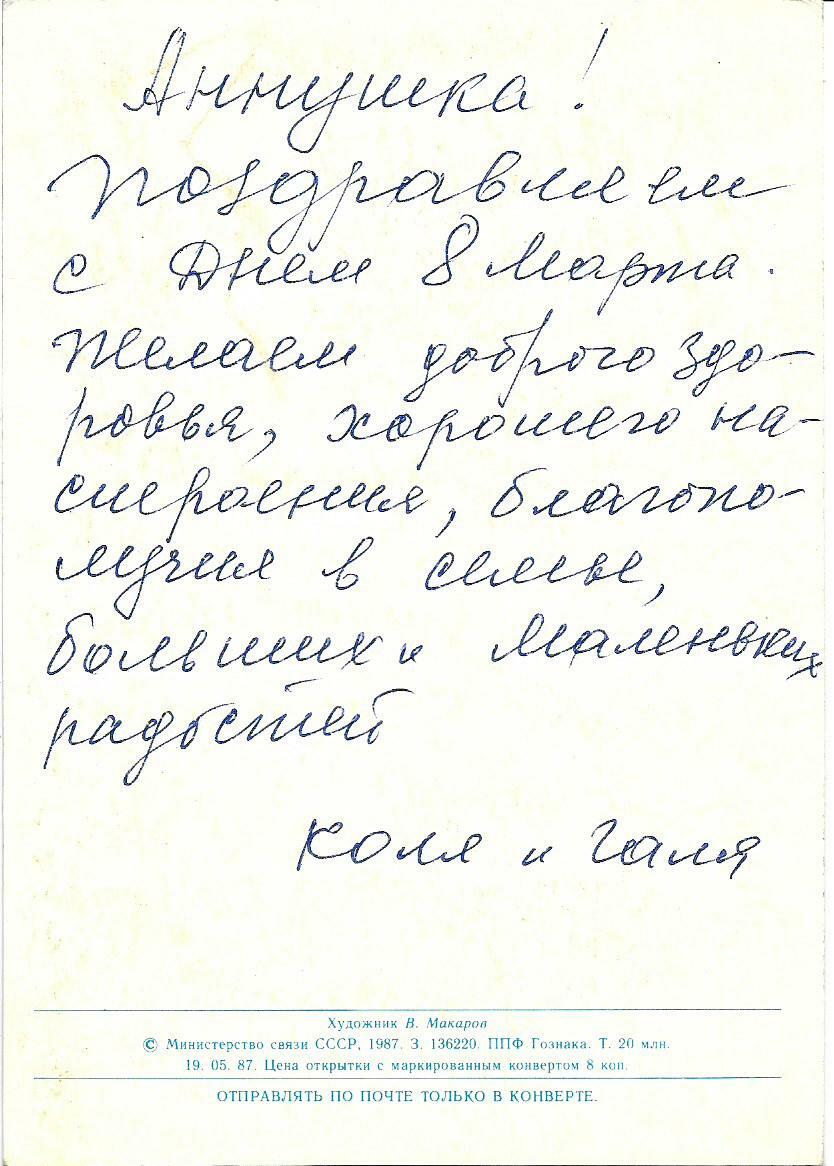 Аннушка!
Поздравляем
с Днем 8 Марта.
Желаем доброго здо-
ровья, хорошего на-
строения, благопо-
лучия в семье,
больших и маленьких
радостей
Коля и Галя
Художник В. Макаров
© Министерство связи СССР, 1987. З. 136220. ППФ Гознака. Т. 20 млн.
19. 05. 87. Цена открытки с маркированным конвертом 8 коп.
ОТПРАВЛЯТЬ ПО ПОЧТЕ ТОЛЬКО В КОНВЕРТЕ.